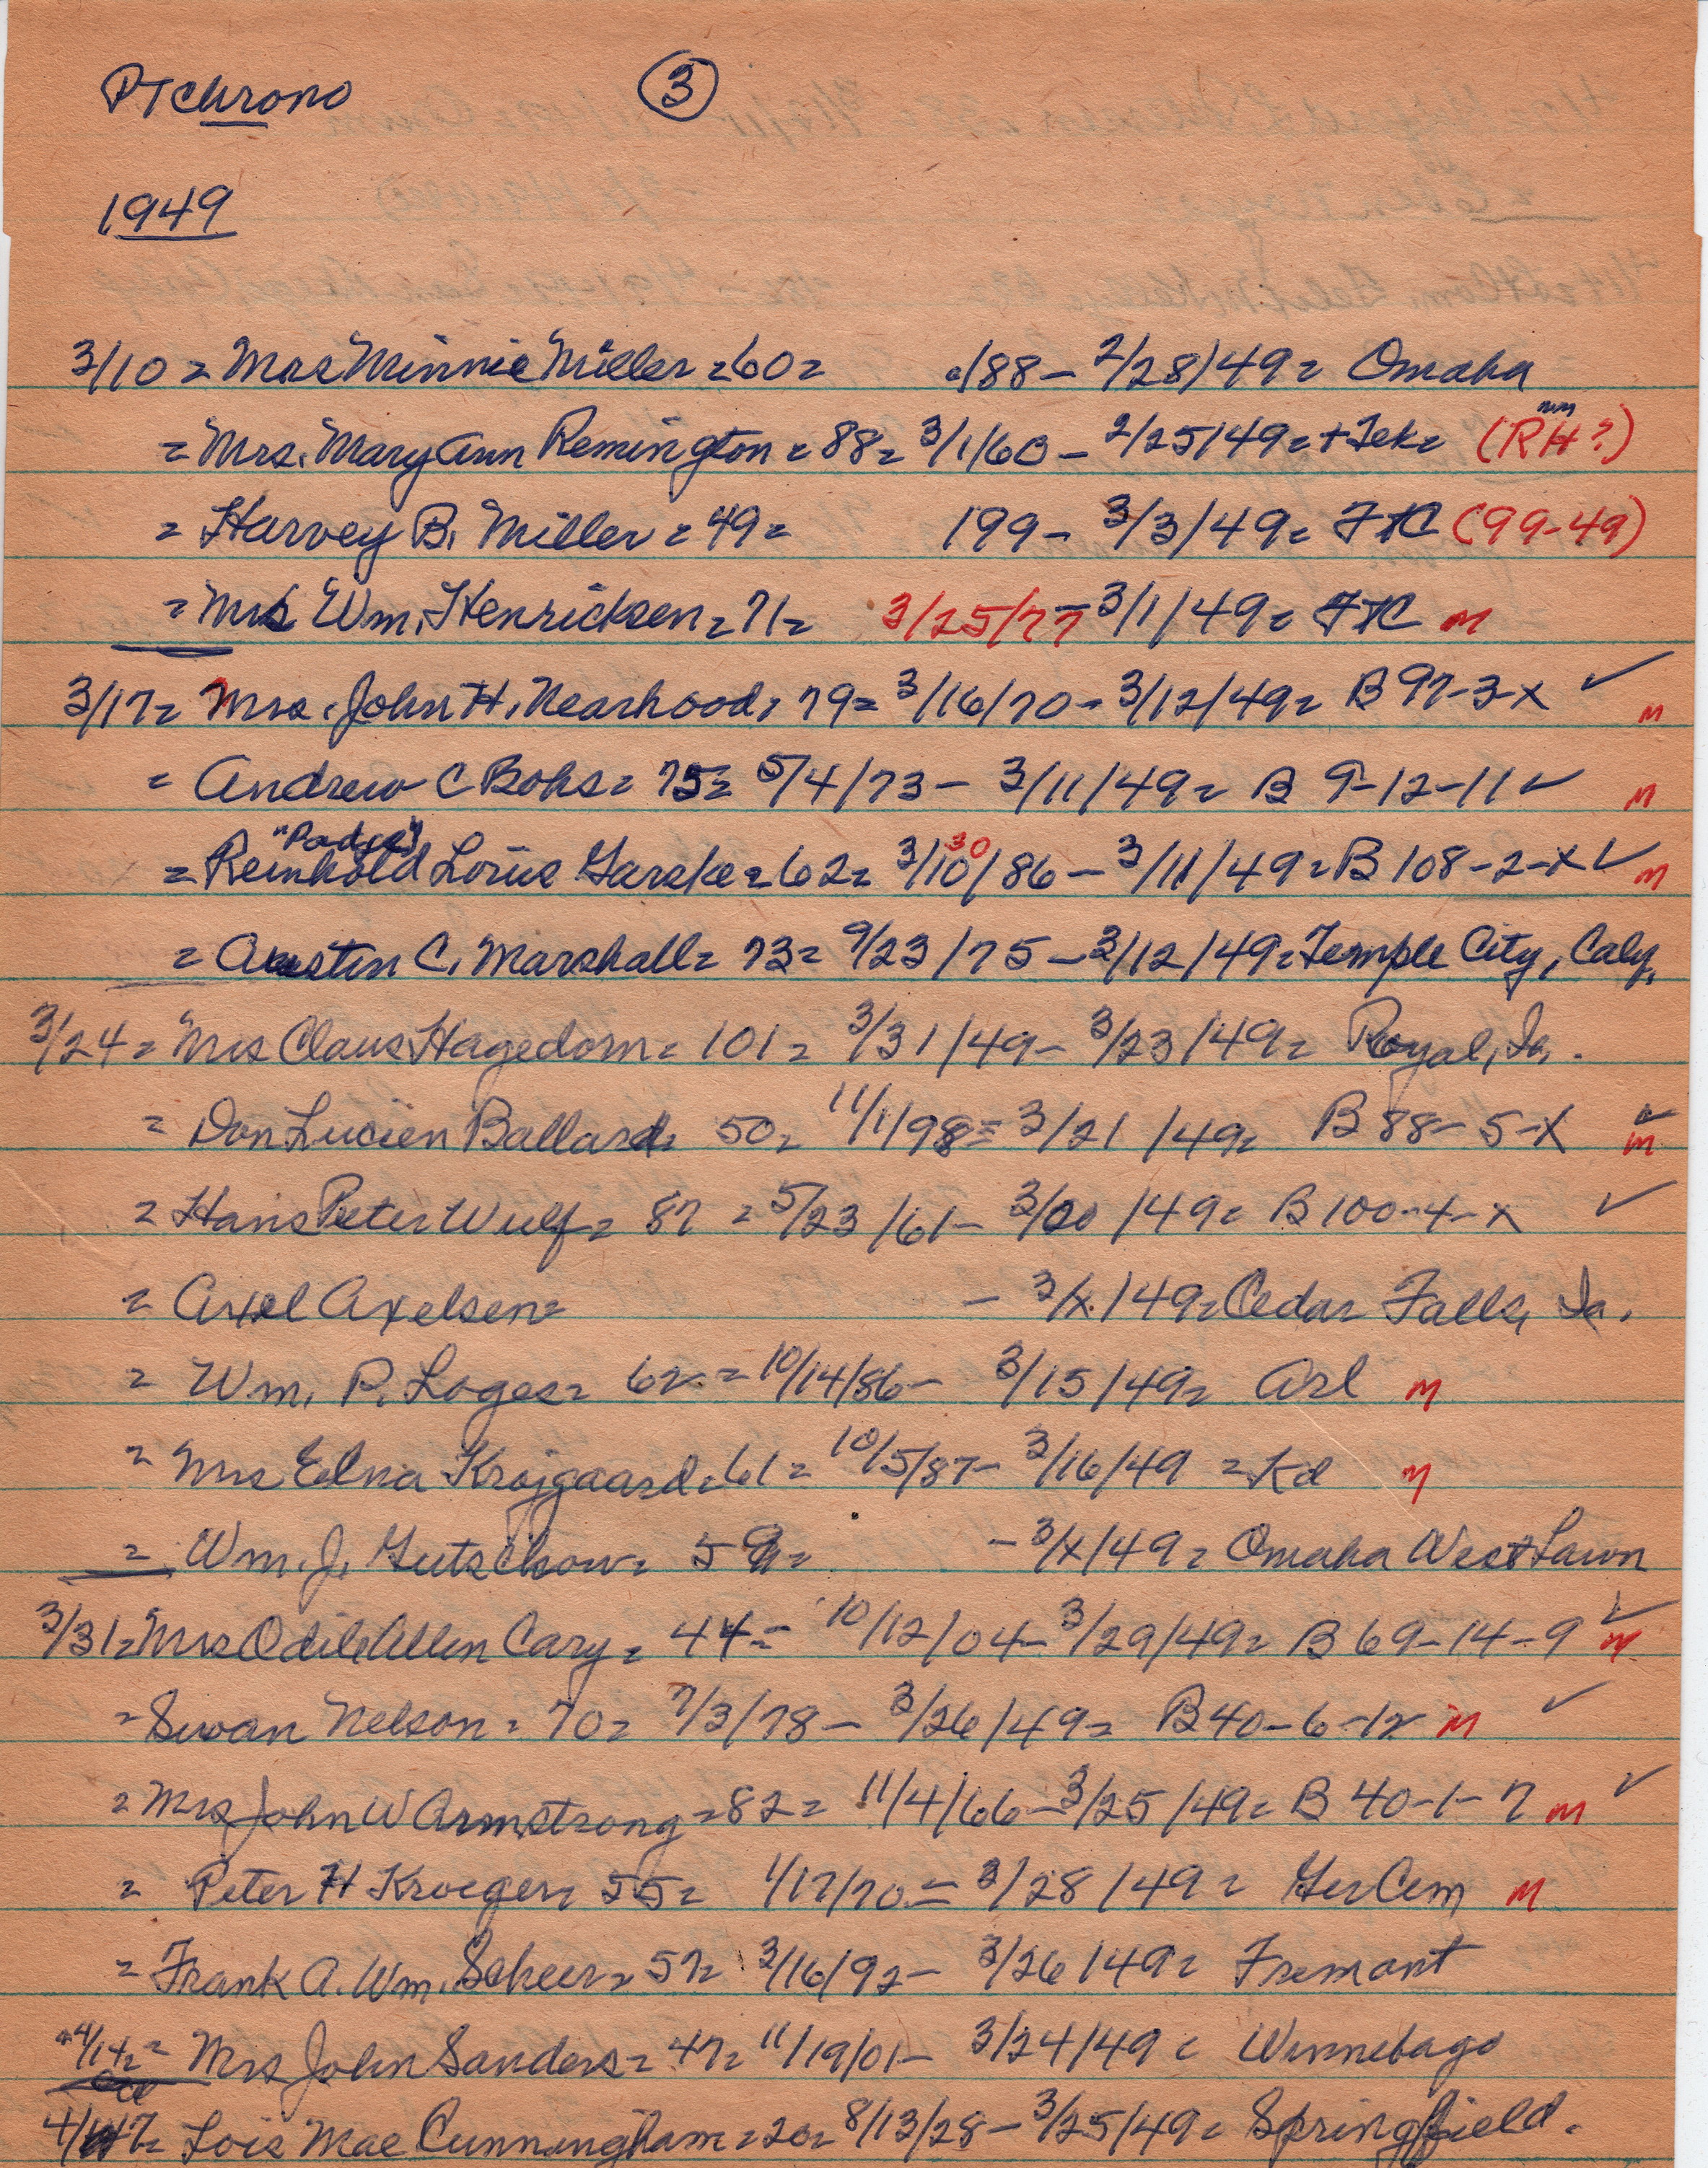 PTchrono 3
1949
3/10 = Mrs Minnie Miller = 60 = /88 - 2/28/49 = Omaha
= Mrs. Mary Ann Remington = 88 = 3/1/60 - 2/25/49 = + Tek = (RH?)
= Harvey B. Miller = 49 = 199 - 3/3/49 = (99-49)
= Mrs Wm. Henricksen = 71 = 3/25/77 - 3/1/49 = M
3/17 = Mrs. John H. Nearhood, 79 = 3/16/70 - 3/12/49 = B 97-3-X ✓ M
= Andrew C Bohs = 75 = 5/4/73 - 3/11/49 = B 9-12-11 ✓ M
"Podge" 30
= Reinhold Louis Garske = 62 = 3/10/86 - 3/11/49 = B 108-2-X ✓ M
= Austin C. Marshall = 73 = 9/23/75 - 3/12/49 = Temple City, Calif.
3/24 = Mrs Claus Hagedorn = 101 = 3/31/49 - 3/23/49 = Royal, Ia.
= Don Lucien Ballard = 50 = 11/1/98 = 3/21/49 = B 88-5-X ✓ M
= Hans Peter Wulf = 87 = 5/23/61 - 3/20/49 = B 100-4-X ✓
= Axel Axelsen = - 3/x/49 = Cedar Falls, Ia.
= Wm. P. Loges = 62 = 10/14/86 - 3/15/49 = Arl M
= Mrs Edna Krojgaard = 61 = 10/5/87 - 3/16/49 = Kd M
= Wm. J. Gutschow = - 3/x/49 = Omaha West Lawn
3/31 = Mrs Odile Allen Cary = 44 = 10/12/04 - 3/29/49 = B 69-14-9 ✓ M
= Swan Nelson = 70 = 7/3/78 - 3/26/49 = B 40-6-12 M ✓
= Mrs John W Armstrong = 82 = 11/4/66 - 3/25/49 = B 40-1-7 M ✓
= Peter H Kroeger = 55 = 1/17/70 = 3/28/49 = Ger Cem M
= Frank A. Wm. Scheer = 57 = 3/16/92 - 3/26/49 = Fremont
= Mrs John Sanders = 47 = 11/19/01 - 3/24/49 = Winnebago
4/7 = Lois Mae Cunningham = 20 = 8/13/28 - 3/25/49 = Springfield.